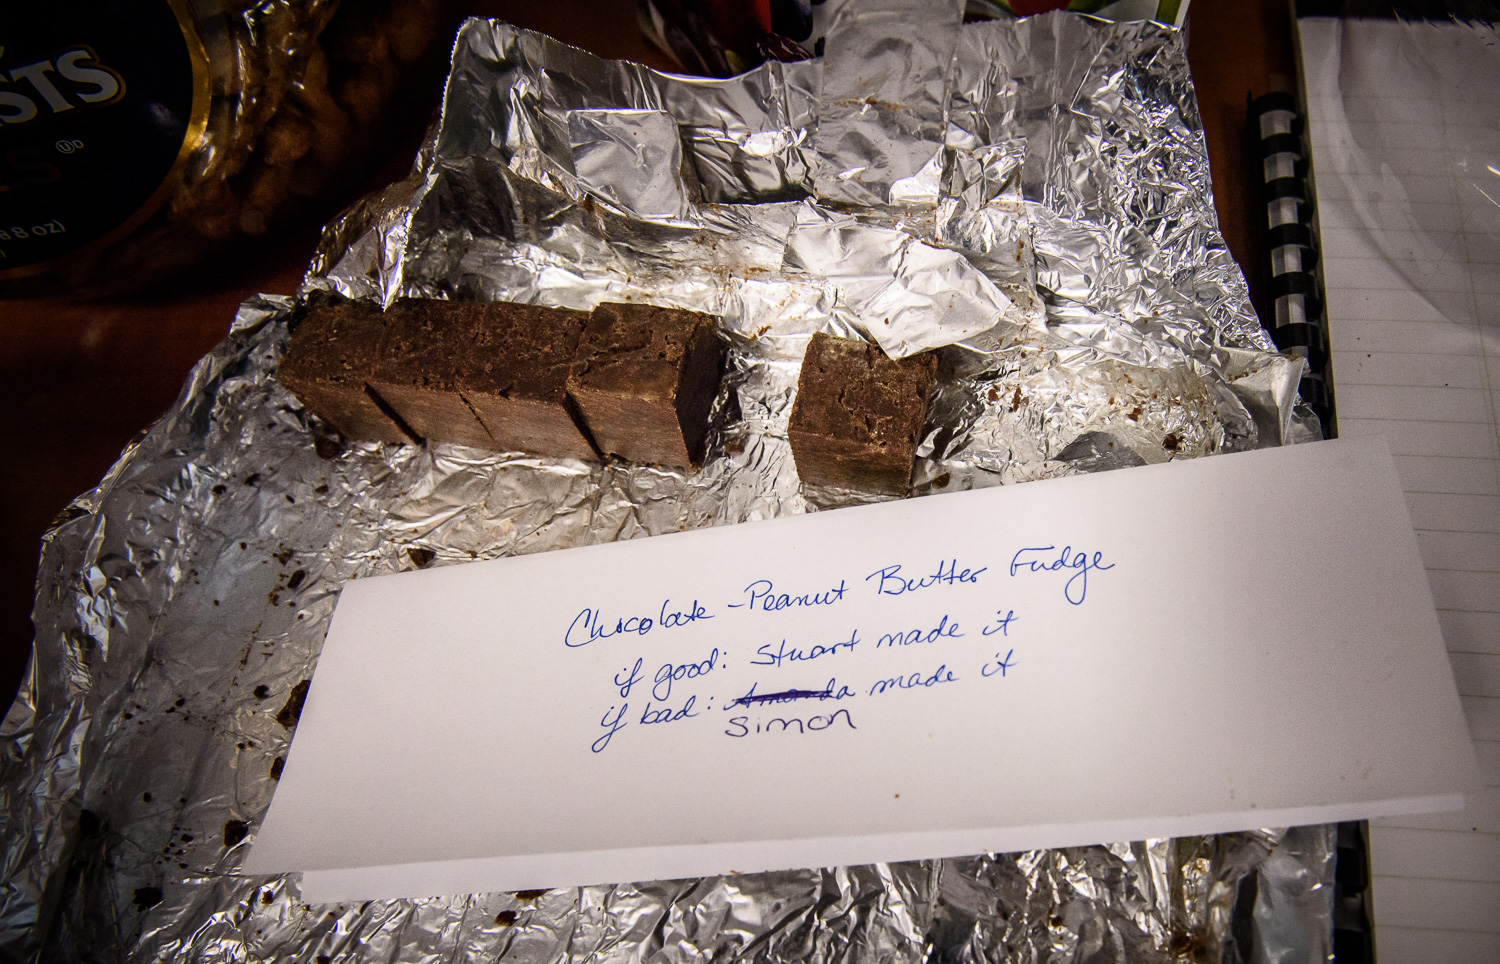 STS
UD
8 oz)
Chocolate-Peanut Butter Fudge
if good: Stuart made it
if bad: Amanda made it
Simon